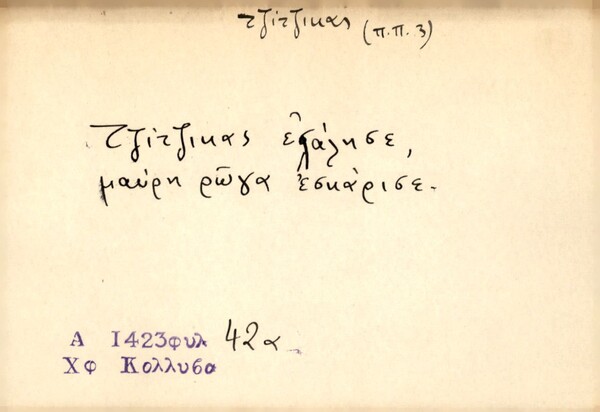 τζίτζικας (π.π. 3)
Τζίτζικας ἐλάλησε,
μαύρη ρῶγα ἐσκάρισε.
Α 1423φυλ 42α
Χφ Κολλυσα